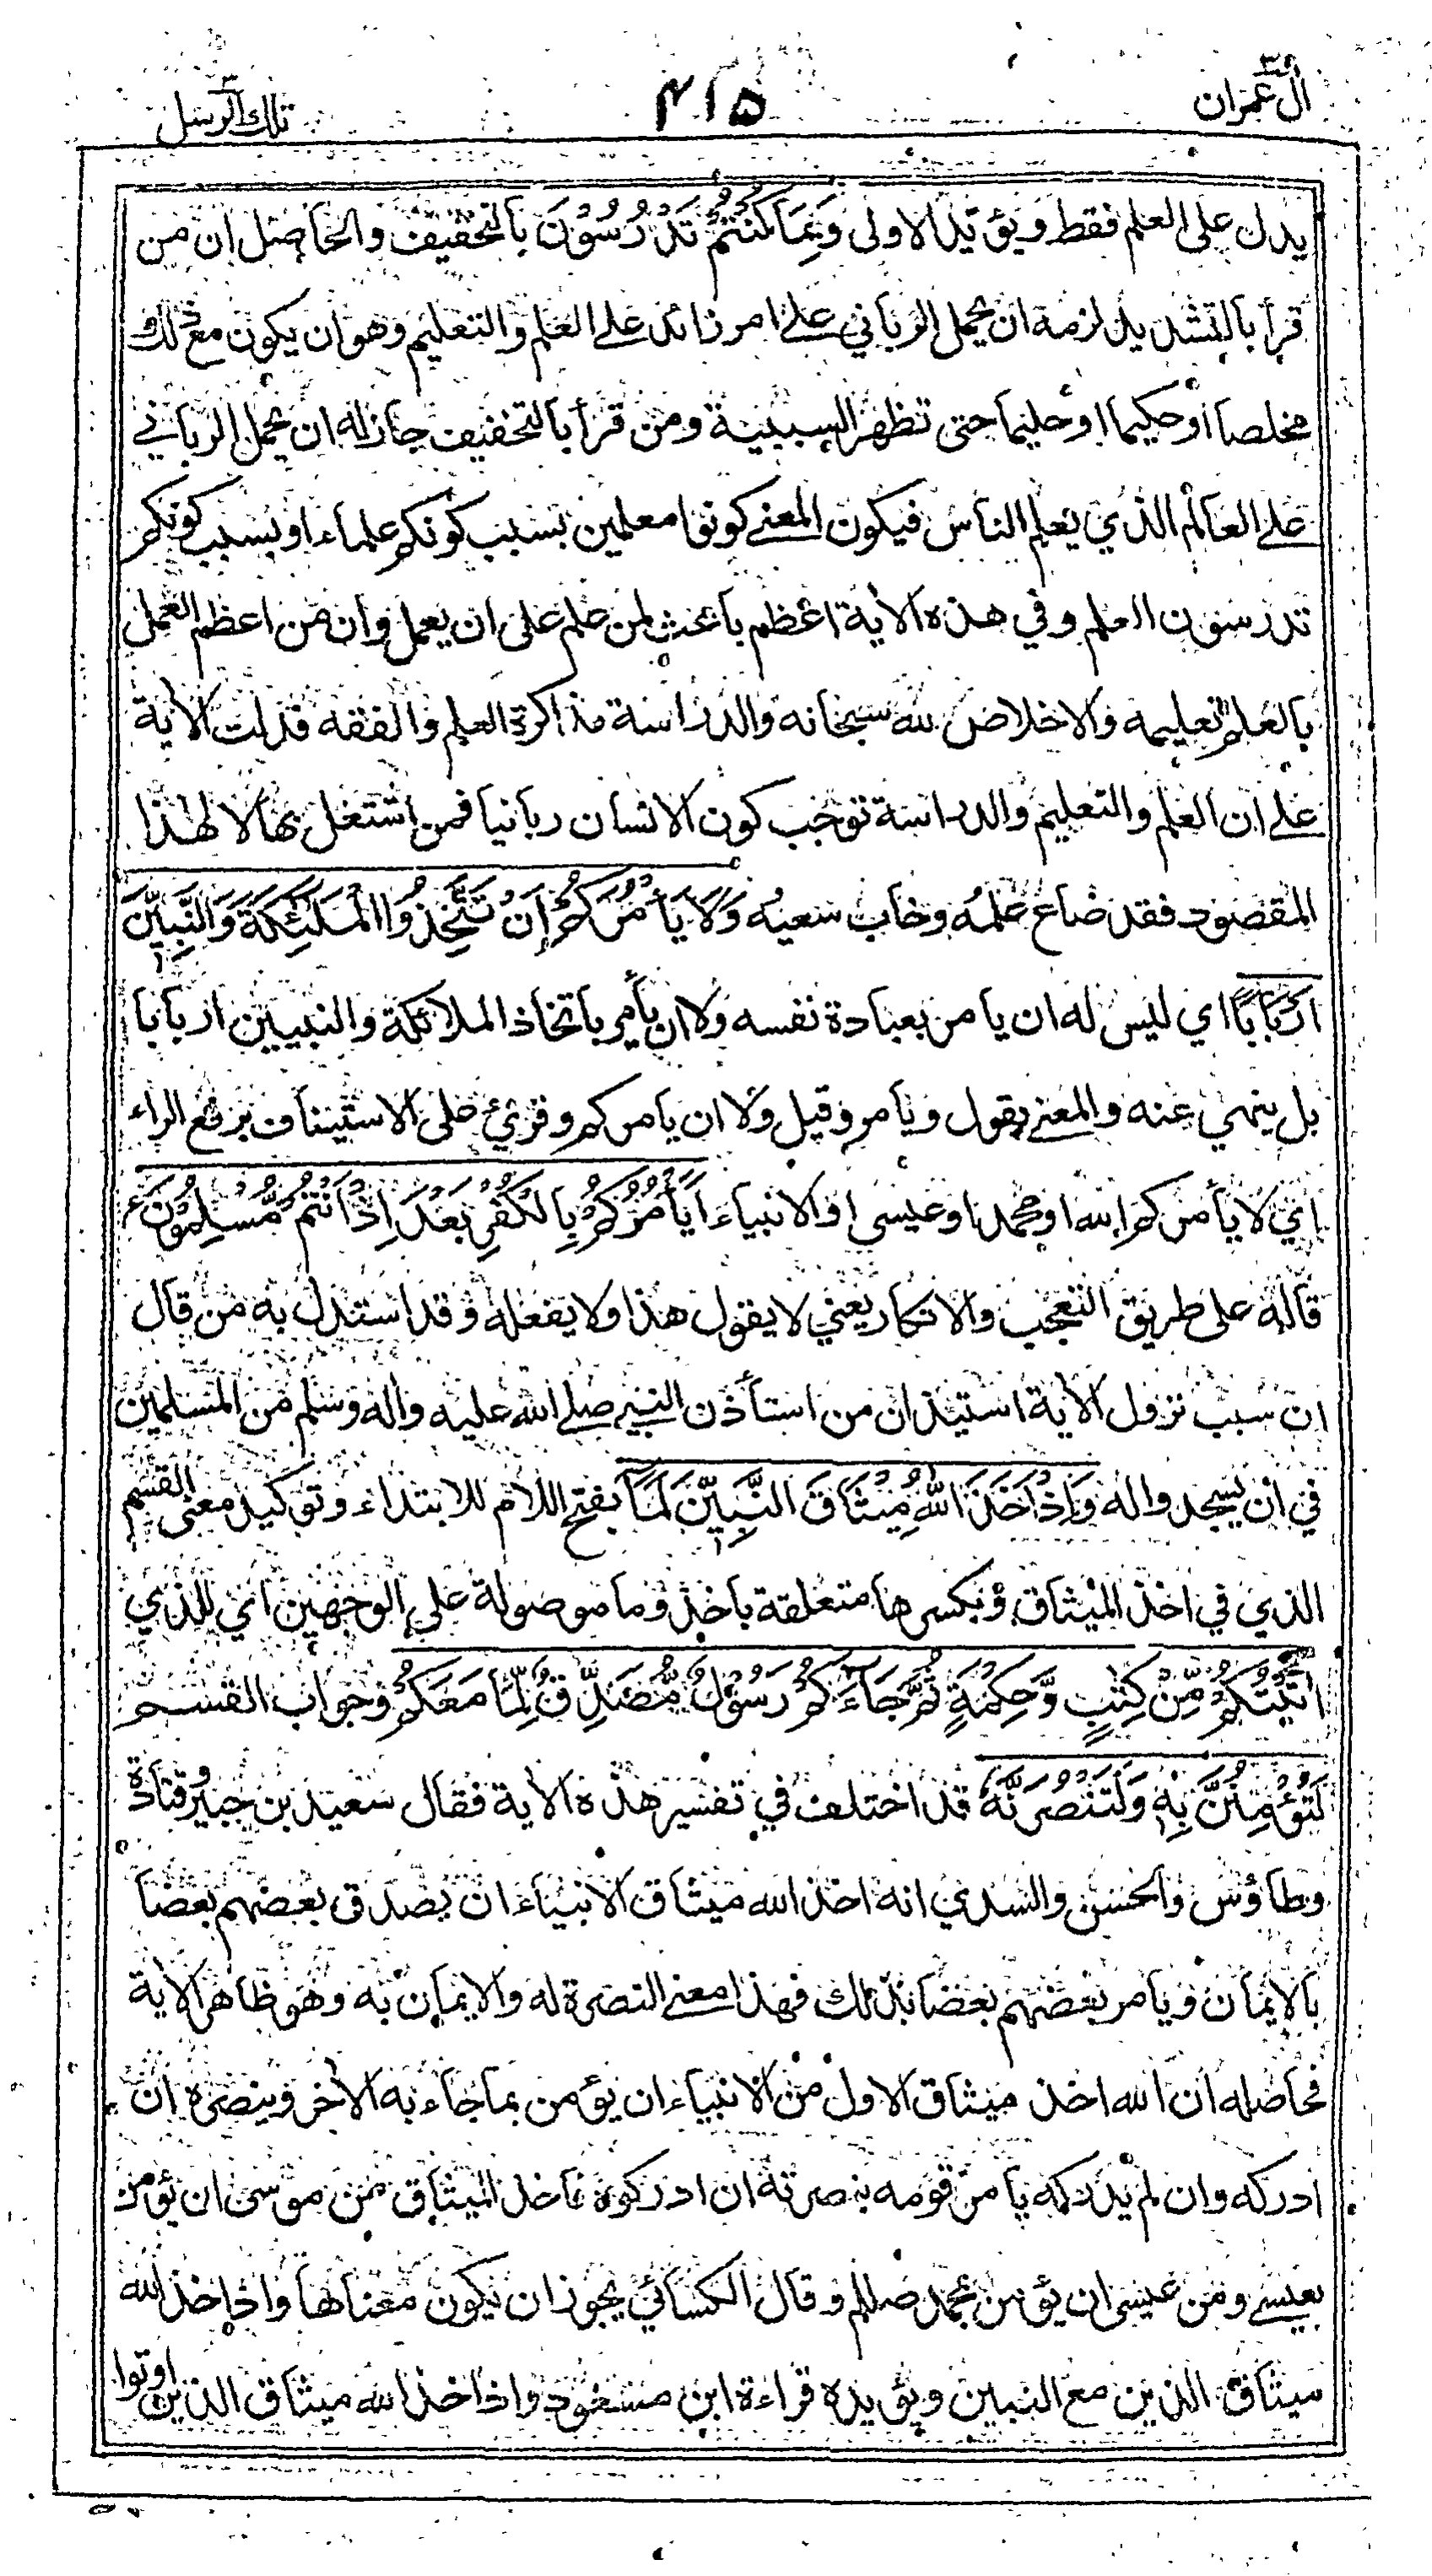 آل عمران ٣
٤١٥
تلك الرسل ٣
يدل على العلم فقط ويؤيد الاولى وَبِمَا كُنْتُمْ تَدْرُسُوْنَ بالتخفيف والحاصل ان من
قرأ بالتشديد لزمه ان يحمل الرباني على امر زائد على العلم والتعليم وهو ان يكون مع ذلك
مخلصا او حكيما او حليما حتى تظهر السببية ومن قرأ بالتخفيف جاز له ان يحمل الرباني
على العالم الذي يعلم الناس فيكون المعنى كونوا معلمين بسبب كونكم علماء او بسبب كونكم
تدرسون العلم وفي هذه الأية اعظم باعث لمن علم على ان يعمل وان من اعظم العمل
بالعلم تعليمه والاخلاص لله سبحانه والدراسة مذاكرة العلم والفقه فدلت الأية
على ان العلم والتعليم والدراسة توجب كون الانسان ربانيا فمن اشتغل بها لا لهذا
المقصود فقد ضاع علمه وخاب سعيه وَلَا يَأْمُرَكُمْ اَنْ تَتَّخِذُوا الْمَلٰئِكَةَ وَالنَّبِيّٖنَ
اَرْبَابًا اي ليس له ان يامر بعبادة نفسه ولا ان يأمر باتخاذ الملائكة والنبيين اربابا
بل ينهي عنه والمعنى يقول ويأمر وقيل ولا ان يامركم وقرئ على الاستيناف برفع الراء
اي لا يأمركم الله او محمد او عيسى او الانبياء اَيَأْمُرُكُمْ بِالْكُفْرِ بَعْدَ اِذْ اَنْتُمْ مُّسْلِمُوْنَ ع
قاله على طريق التعجب والانكار يعني لا يقول هذا ولا يفعله وقد استدل به من قال
ان سبب نزول الأية استيذان من استأذن النبي صلى الله عليه واله وسلم من المسلمين
في ان يسجدوا له وَاِذْ اَخَذَ اللّٰهُ مِيْثَاقَ النَّبِيّٖنَ لَمَآ بفتح اللام للابتداء وتوكيد معنى القسم
الذي في اخذ الميثاق وبكسرها متعلقة باخذ وما موصولة على الوجهين اي للذي
اٰتَيْتُكُمْ مِّنْ كِتٰبٍ وَّحِكْمَةٍ ثُمَّ جَآءَكُمْ رَسُوْلٌ مُّصَدِّقٌ لِّمَا مَعَكُمْ وجواب القسم
لَتُؤْمِنُنَّ بِهٖ وَلَتَنْصُرُنَّهٗ قد اختلف في تفسير هذه الأية فقال سعيد بن جبير وقتادة
وطاؤس والحسن والسدي انه اخذ الله ميثاق الانبياء ان يصدق بعضهم بعضا
بالايمان ويأمر بعضهم بعضا بذلك فهذا معنى النصرة له والايمان به وهو ظاهر الأية
فحاصله ان الله اخذ ميثاق الاول من الانبياء ان يؤمن بما جاء به الأخر وينصره ان
ادركه وان لم يدركه يامر قومه بنصرته ان ادركوه فاخذ الميثاق من موسى ان يؤمن
بعيسى ومن عيسى ان يؤمن بمحمد صللم وقال الكسائي يجوز ان يكون معناها واذ اخذ الله
ميثاق الذين مع النبيين ويؤيده قراءة ابن مسعود واذ اخذ الله ميثاق الذين اوتوا